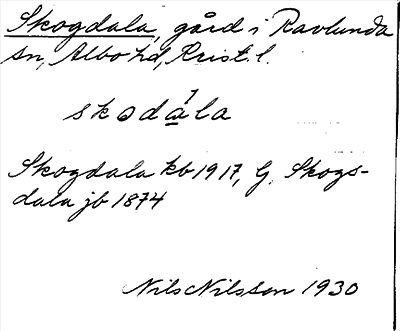 Skogdala, gård i Ravlunda
sn, Albo hd, Krist. l.
skodàla
Skogdala kb 1917, G. Skogs-
dala jb 1874
Nils Nilsson 1930